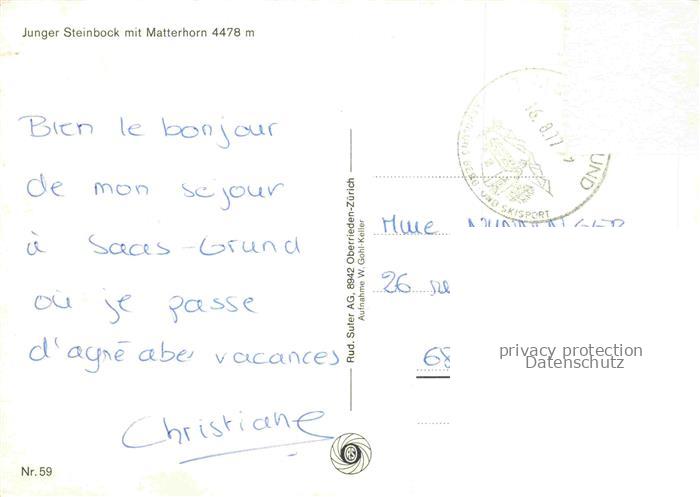 Junger Steinbock mit Matterhorn 4478 m
Bien le bonjour
de mon séjour
à Saas-Grund
où je passe
d'agréables vacances
Christiane
Nr. 59
Rud. Suter AG, 8942 Oberrieden-Zürich
Aufnahme W. Gohl-Keller
16.8.77
UND
BERG UND SKISPORT
Mme
26
68
privacy protection
Datenschutz